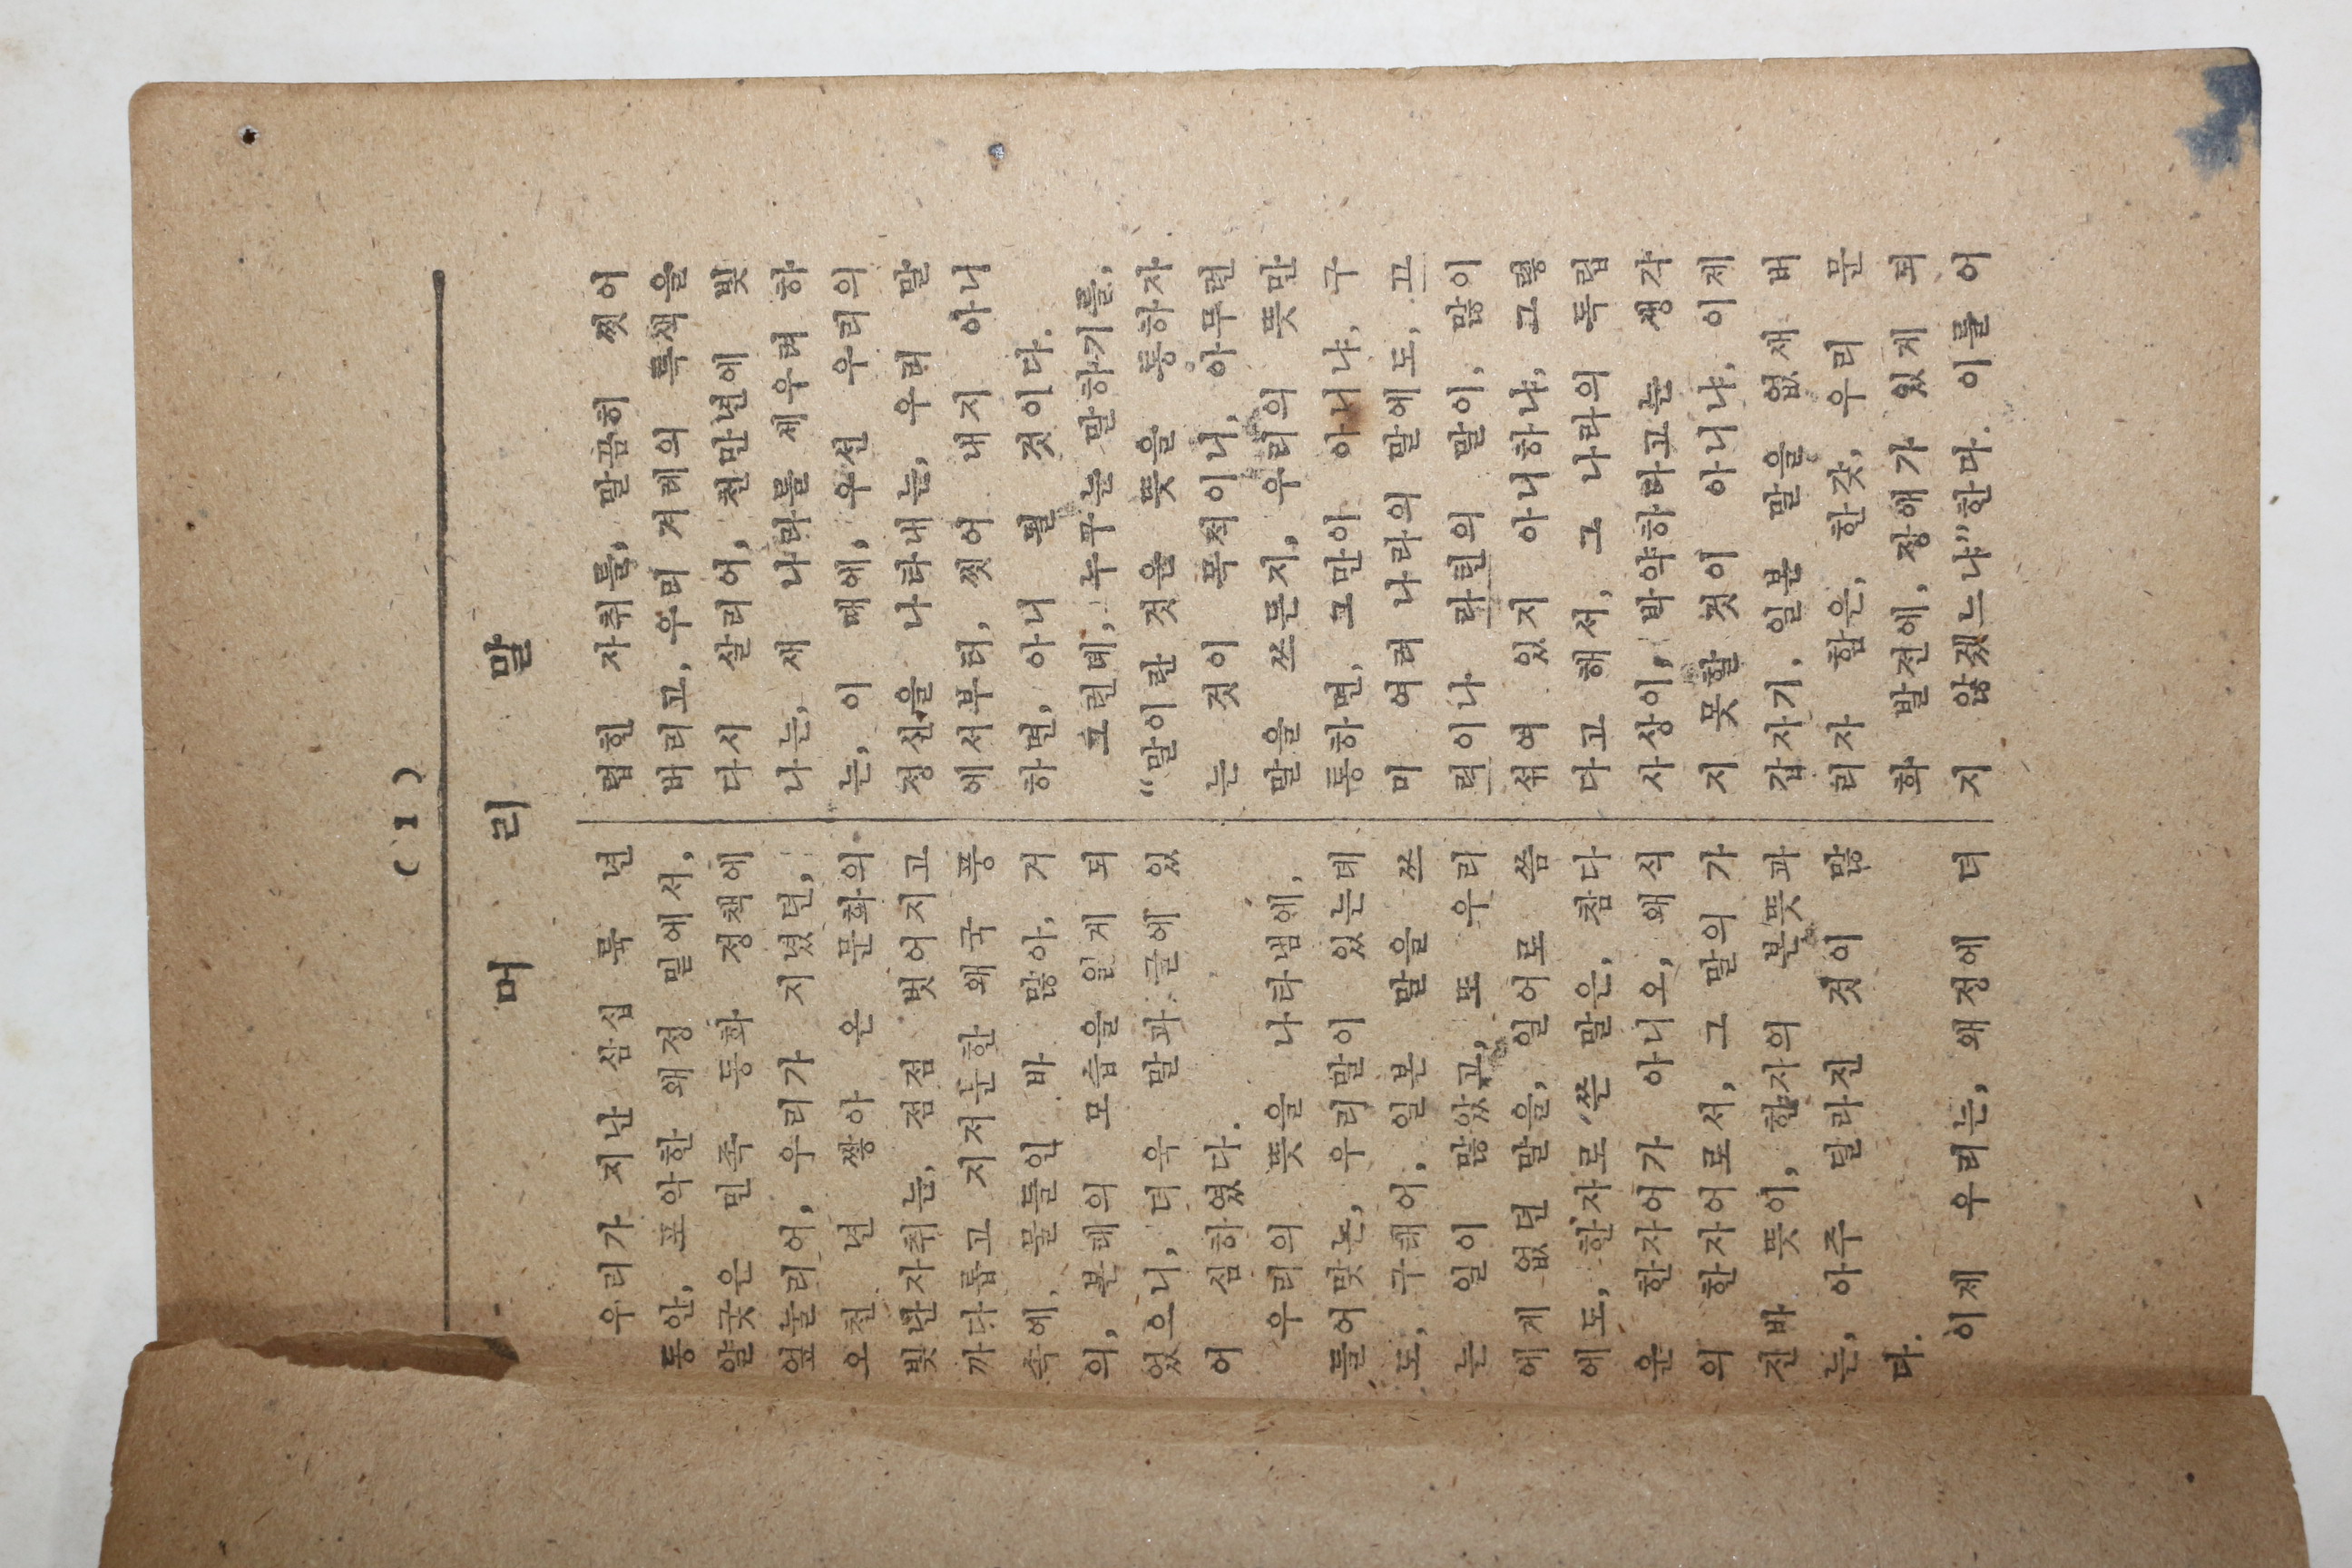 ( 1 )
머 리 말
우리가 지난 삼십 륙 년
동안, 포악한 왜정 밑에서,
얄궂은 민족 동화 정책에
엎눌리어, 우리가 지녔던,
오천 년 쌓아 온 문화의
빛난 자취는, 점점 벗어지고
까다롭고 지저분한 왜국 풍
속에, 물들인 바 많아, 거
의, 본대의 모습을 잃게 되
었으니, 더욱 말과 글에 있
어 심하였다.
우리의 뜻을 나타냄에,
들어맞는, 우리 말이 있는데
도, 구태어, 일본 말을 쓰
는 일이 많았고, 또 우리
에게 없던 말을, 일어로 씀
에도, 한자로 쓴 말은, 참다
운 한자어가 아니오, 왜식
의 한자어로서, 그 말의 가
진 바 뜻이, 한자의 본뜻과
는, 아주 달라진 것이 많
다.
이제 우리는, 왜정에 더
럽힌 자취를, 말끔히 씻어
버리고, 우리 겨레의 특색을
다시 살리어, 천만년에 빛
나는, 새 나라를 세우려 하
는, 이 때에, 우선 우리의
정신을 나타내는, 우리 말
에서부터, 씻어 내지 아니
하면, 아니 될 것이다.
그런데, 누구는 말하기를,
“말이란 것은 뜻을 통하자
는 것이 목적이니, 아무런
말을 쓰든지, 우리의 뜻만
통하면, 그만이 아니냐, 구
미 여러 나라의 말에도, 그
릭이나 라틴의 말이, 많이
섞여 있지 아니하냐, 그렇
다고 해서, 그 나라의 독립
사상이, 박약하다고는 생각
지 못할 것이 아니냐, 이제
갑자기, 일본 말을 없새 버
리자 함은, 한갓, 우리 문
화 발전에, 장애가 있게 되
지 않겠느냐”한다. 이를 어